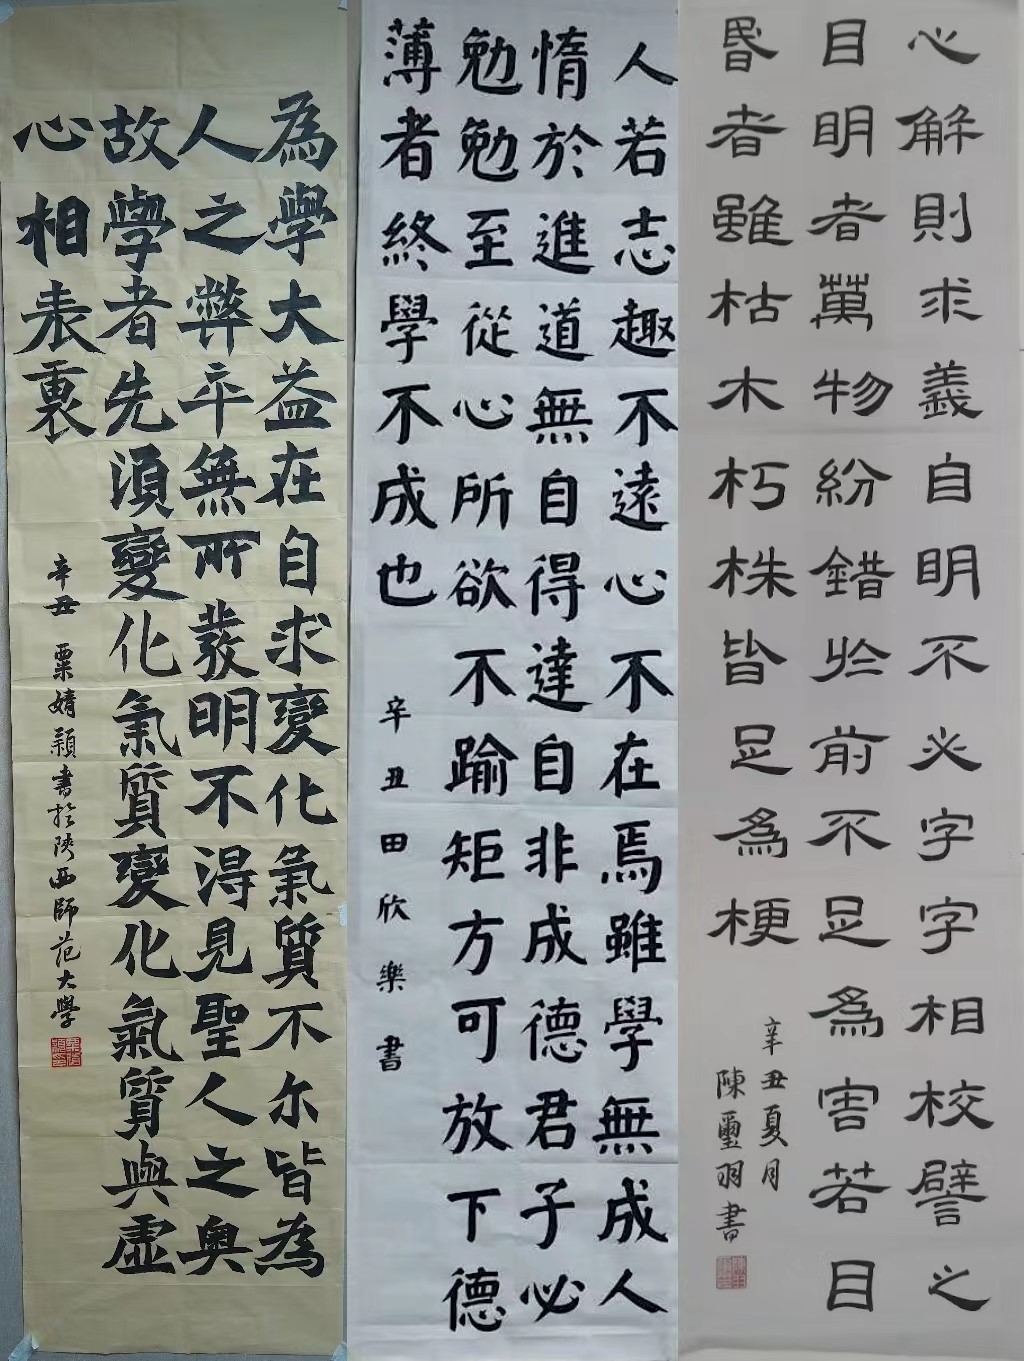 心解則求義自明不必字字相校譬之
目明者萬物紛錯於前不足為害若目
昬者雖枯木朽株皆足為梗
辛丑夏月
陳璽羽書
人若志趣不遠心不在焉雖學無成人
惰於進道無自得達自非成德君子必
勉勉至從心所欲不踰矩方可放下德
薄者終學不成也
辛丑田欣樂書
為學大益在自求變化氣質不尔皆為
人之弊卒無所發明不得見聖人之奧
故學者先須變化氣質變化氣質與虛
心相表裏
辛丑 粟婧穎書於陝西師范大學